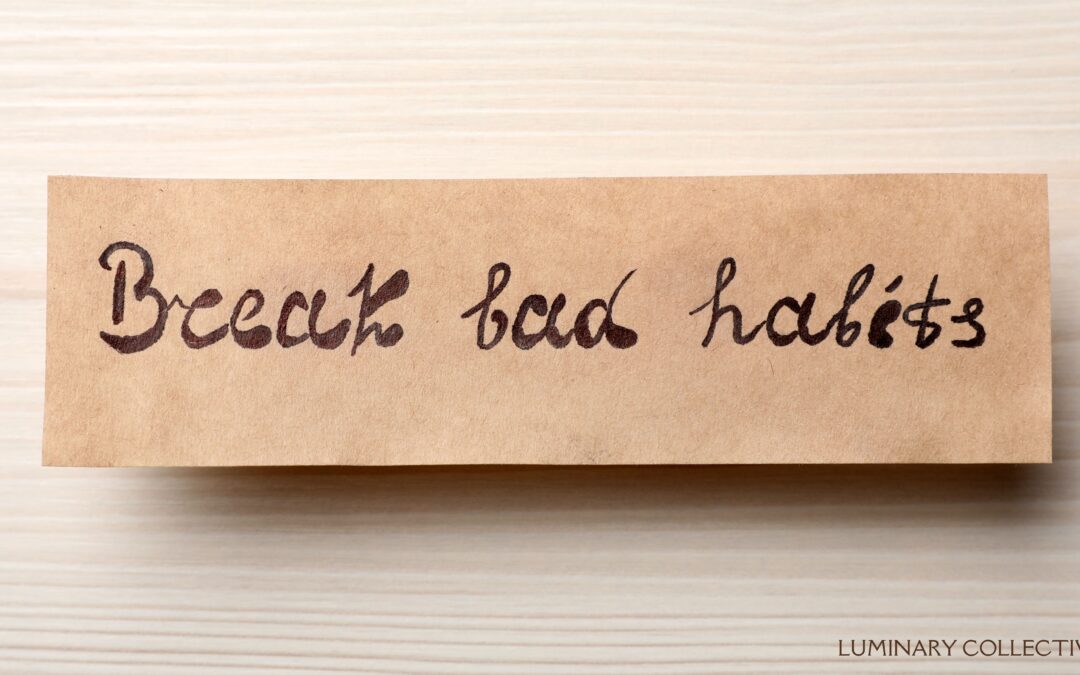 Break bad habits
LUMINARY COLLECTIV